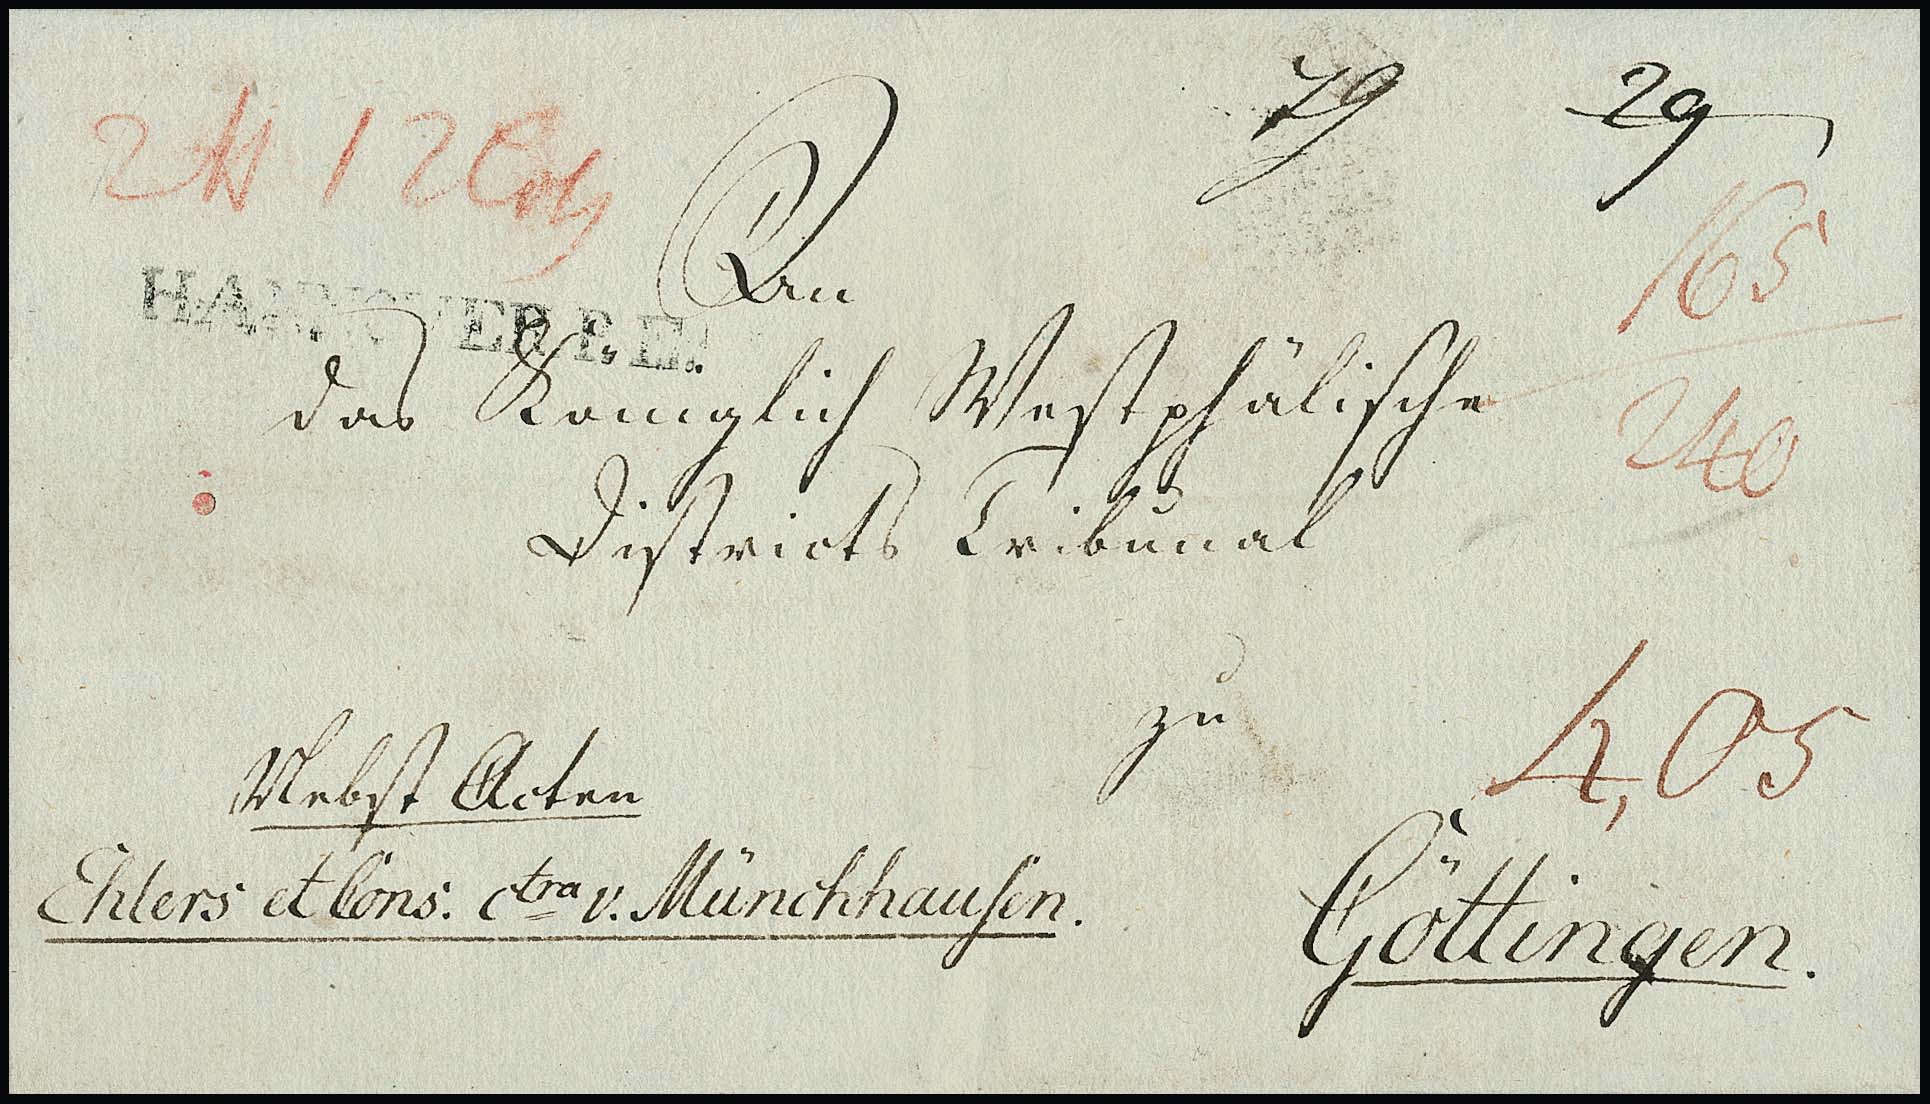 79 29
2 12
165
HANNOVER P. E.
An
das Königlich Westphälische
240
Districts Tribunal
zu
4,05
Nebst Acten
Ehlers et Cons. ctra v. Münchhausen.
Göttingen.